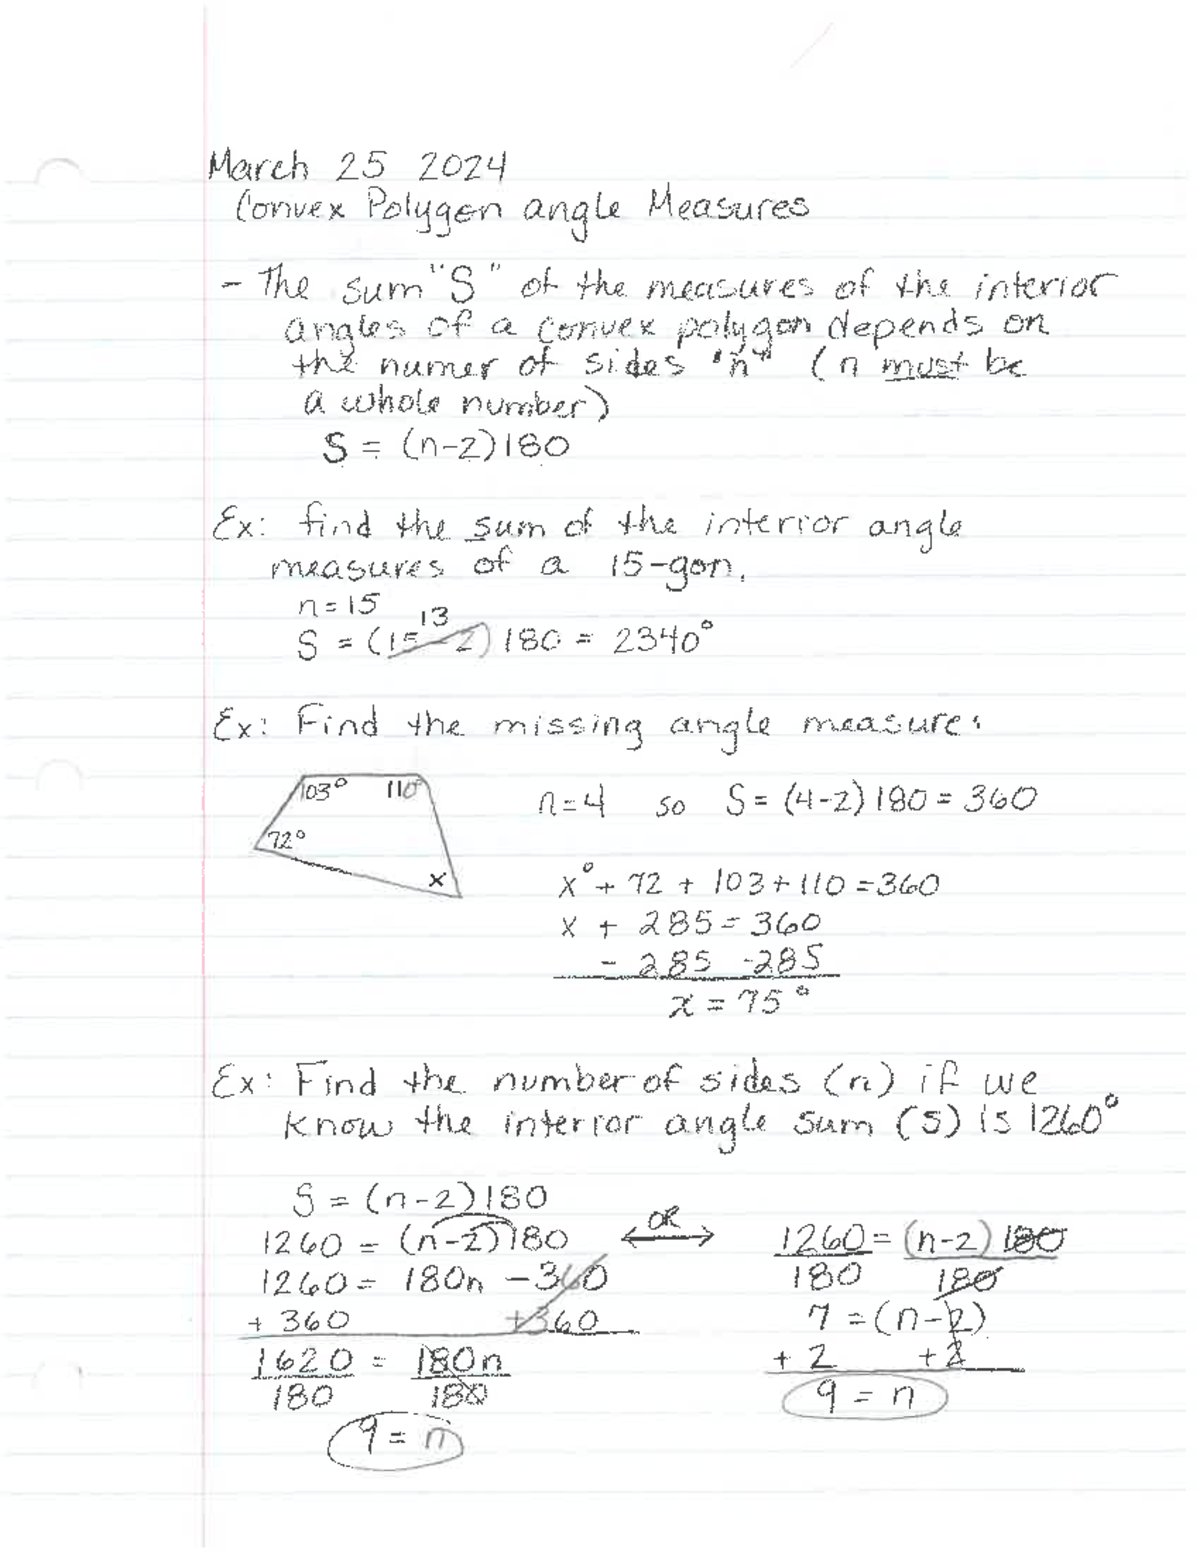 March 25 2024
Convex Polygon angle Measures
- The sum "S" of the measures of the interior
angles of a convex polygon depends on
the numer of sides "n" (n must be
a whole number)
S = (n-2)180
Ex: find the sum of the interior angle
measures of a 15-gon.
n=15
13
S = (15-2)180 = 2340°
Ex: Find the missing angle measure:
103° 110°
72°
x
n=4 so S= (4-2)180 = 360
x° + 72 + 103 + 110 = 360
x + 285 = 360
- 285 -285
x = 75°
Ex: Find the number of sides (n) if we
know the interior angle sum (S) is 1260°
S = (n-2)180
1260 = (n-2)180
1260 = 180n - 360
+ 360 +360
1620 = 180n
180 180
9 = n
OR
1260 = (n-2)180
180 180
7 = (n-2)
+ 2 +2
9 = n